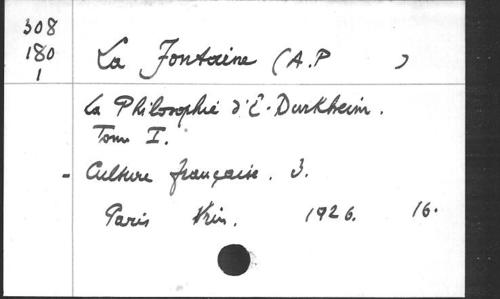 308
180
1
La Fontaine (A.P )
La Philosophie d'E. Durkheim.
Tom I.
- Culture française. 3.
Paris Vrin. 1926. 16.